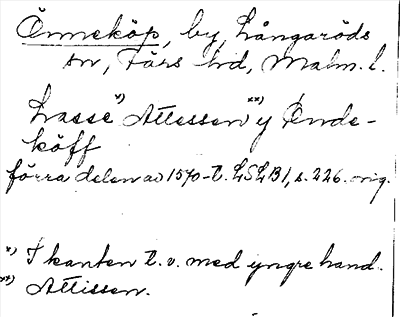 Önneköp, by, Långaröds
sn, Färs hd, Malm. l.
Lasse *) Attessen **) y Önde-
köff
förra delen av 1570-t. LSLB1, s. 226. orig.
*) I kanten t. v. med yngre hand.
**) Attissen.